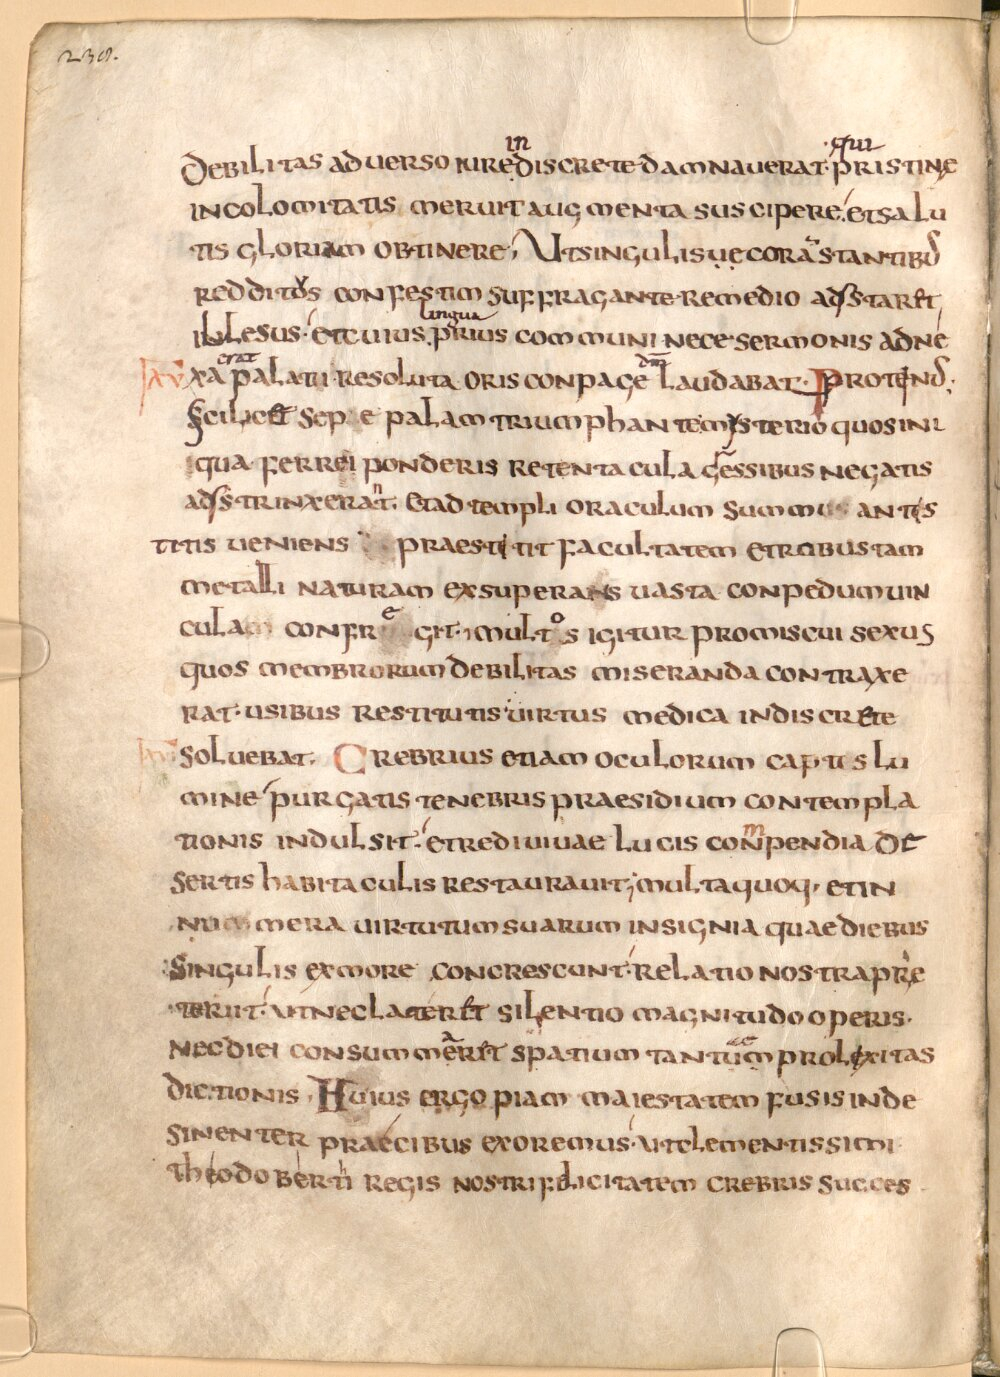 238.
debilitas adverso iure indiscrete damnaverat · qui pristinę
incolomitatis meruit augmenta suscipere · et salu
tis gloriam obtinere; Ut singulis uę corā stantibus
redditus confestim suffragante remedio adstaret
illesus · et cuius lingua prius communi nece sermonis adne
XV xa erat palati resoluta oris conpage dn̄m laudabat · Protend ·
scilicet sepe palam triumphante mysterio quos ini
qua ferrei ponderis retentacula gressibus negatis
adstrinxerant · et ad templi oraculum summus antis
titis veniens praestitit facultatem et robustam
metalli naturam exsuperans vasta conpedum vin
cula confregit · multos igitur promiscui sexus
quos membrorum debilitas miseranda contraxe
rat · usibus restitutis virtus medica indiscrete
solvebat · Crebrius etiam oculorum captis lu
mine purgatis tenebris praesidium contempla
tionis indulsit · et redivivae lucis compendia de
sertis habitaculis restauravit; multa quoq, et in
numera virtutum suarum insignia quae diebus
singulis ex more concrescunt · relatio nostra prę
teriit · ut nec lateret silentio magnitudo operis ·
nec diei consummaret spatium tantum prolixitas
dictionis · Huius ergo piam maiestatem fusis inde
sinenter praecibus exoremus · ut clementissimi
theodoberti regis nostri felicitatem crebris succes